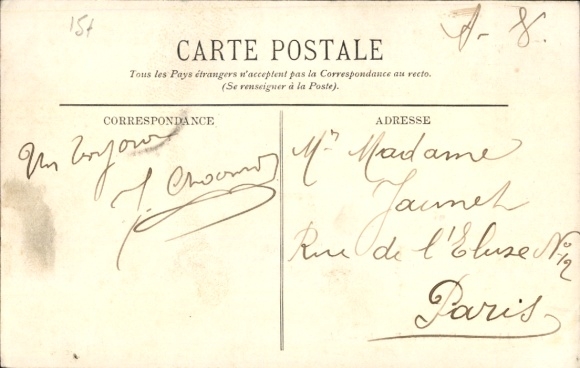 15f
A- V.
CARTE POSTALE
Tous les Pays étrangers n'acceptent pas la Correspondance au recto.
(Se renseigner à la Poste).
CORRESPONDANCE
ADRESSE
Un bonjour
J.
Mr Madame
Jaunet
Rue de l'Ecluse No 12
Paris